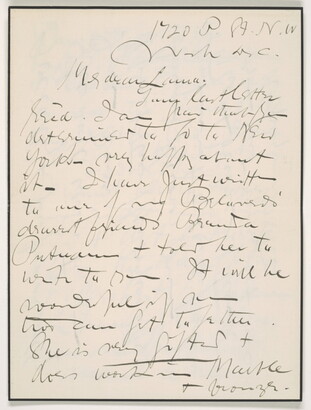 1720 P St. N.W
Wash D.C.
My dear Lama.
Your last letter
rec'd. I am glad that you
determined to go to New
York - very happy about
it - I have just writ
to one of my Beloved's
dearest friends Brenda
Putnam + told her to
write to you. It will be
wonderful if you
two can get together.
She is very gifted +
does work in Marble
+ bronze.